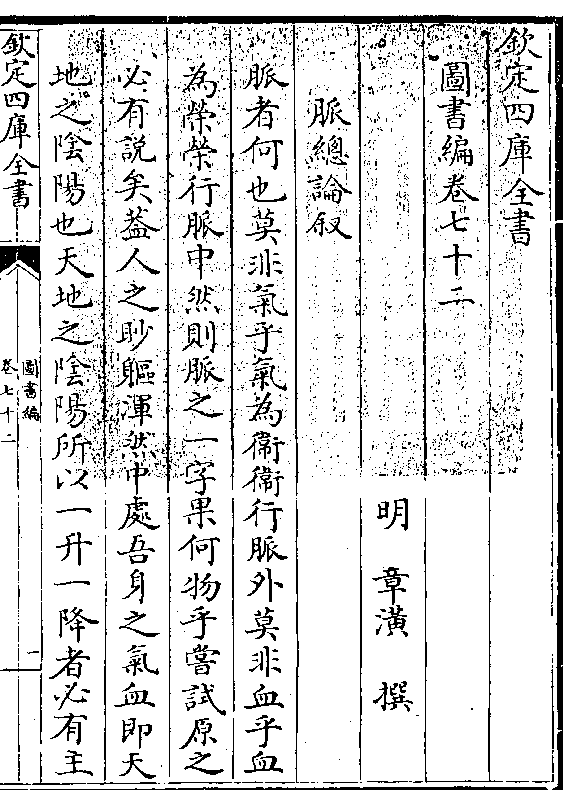 欽定四庫全書
圖書編卷七十二
明 章潢 撰
脈總論叙
脈者何也莫非氣乎氣為衞衞行脈外莫非血乎血
為榮榮行脈中然則脈之一字果何物乎嘗試原之
必有説矣葢人之眇軀渾然中處吾身之氣血即天
地之陰陽也天地之陰陽所以一升一降者必有主
欽定四庫全書
圖書編
卷七十二
一